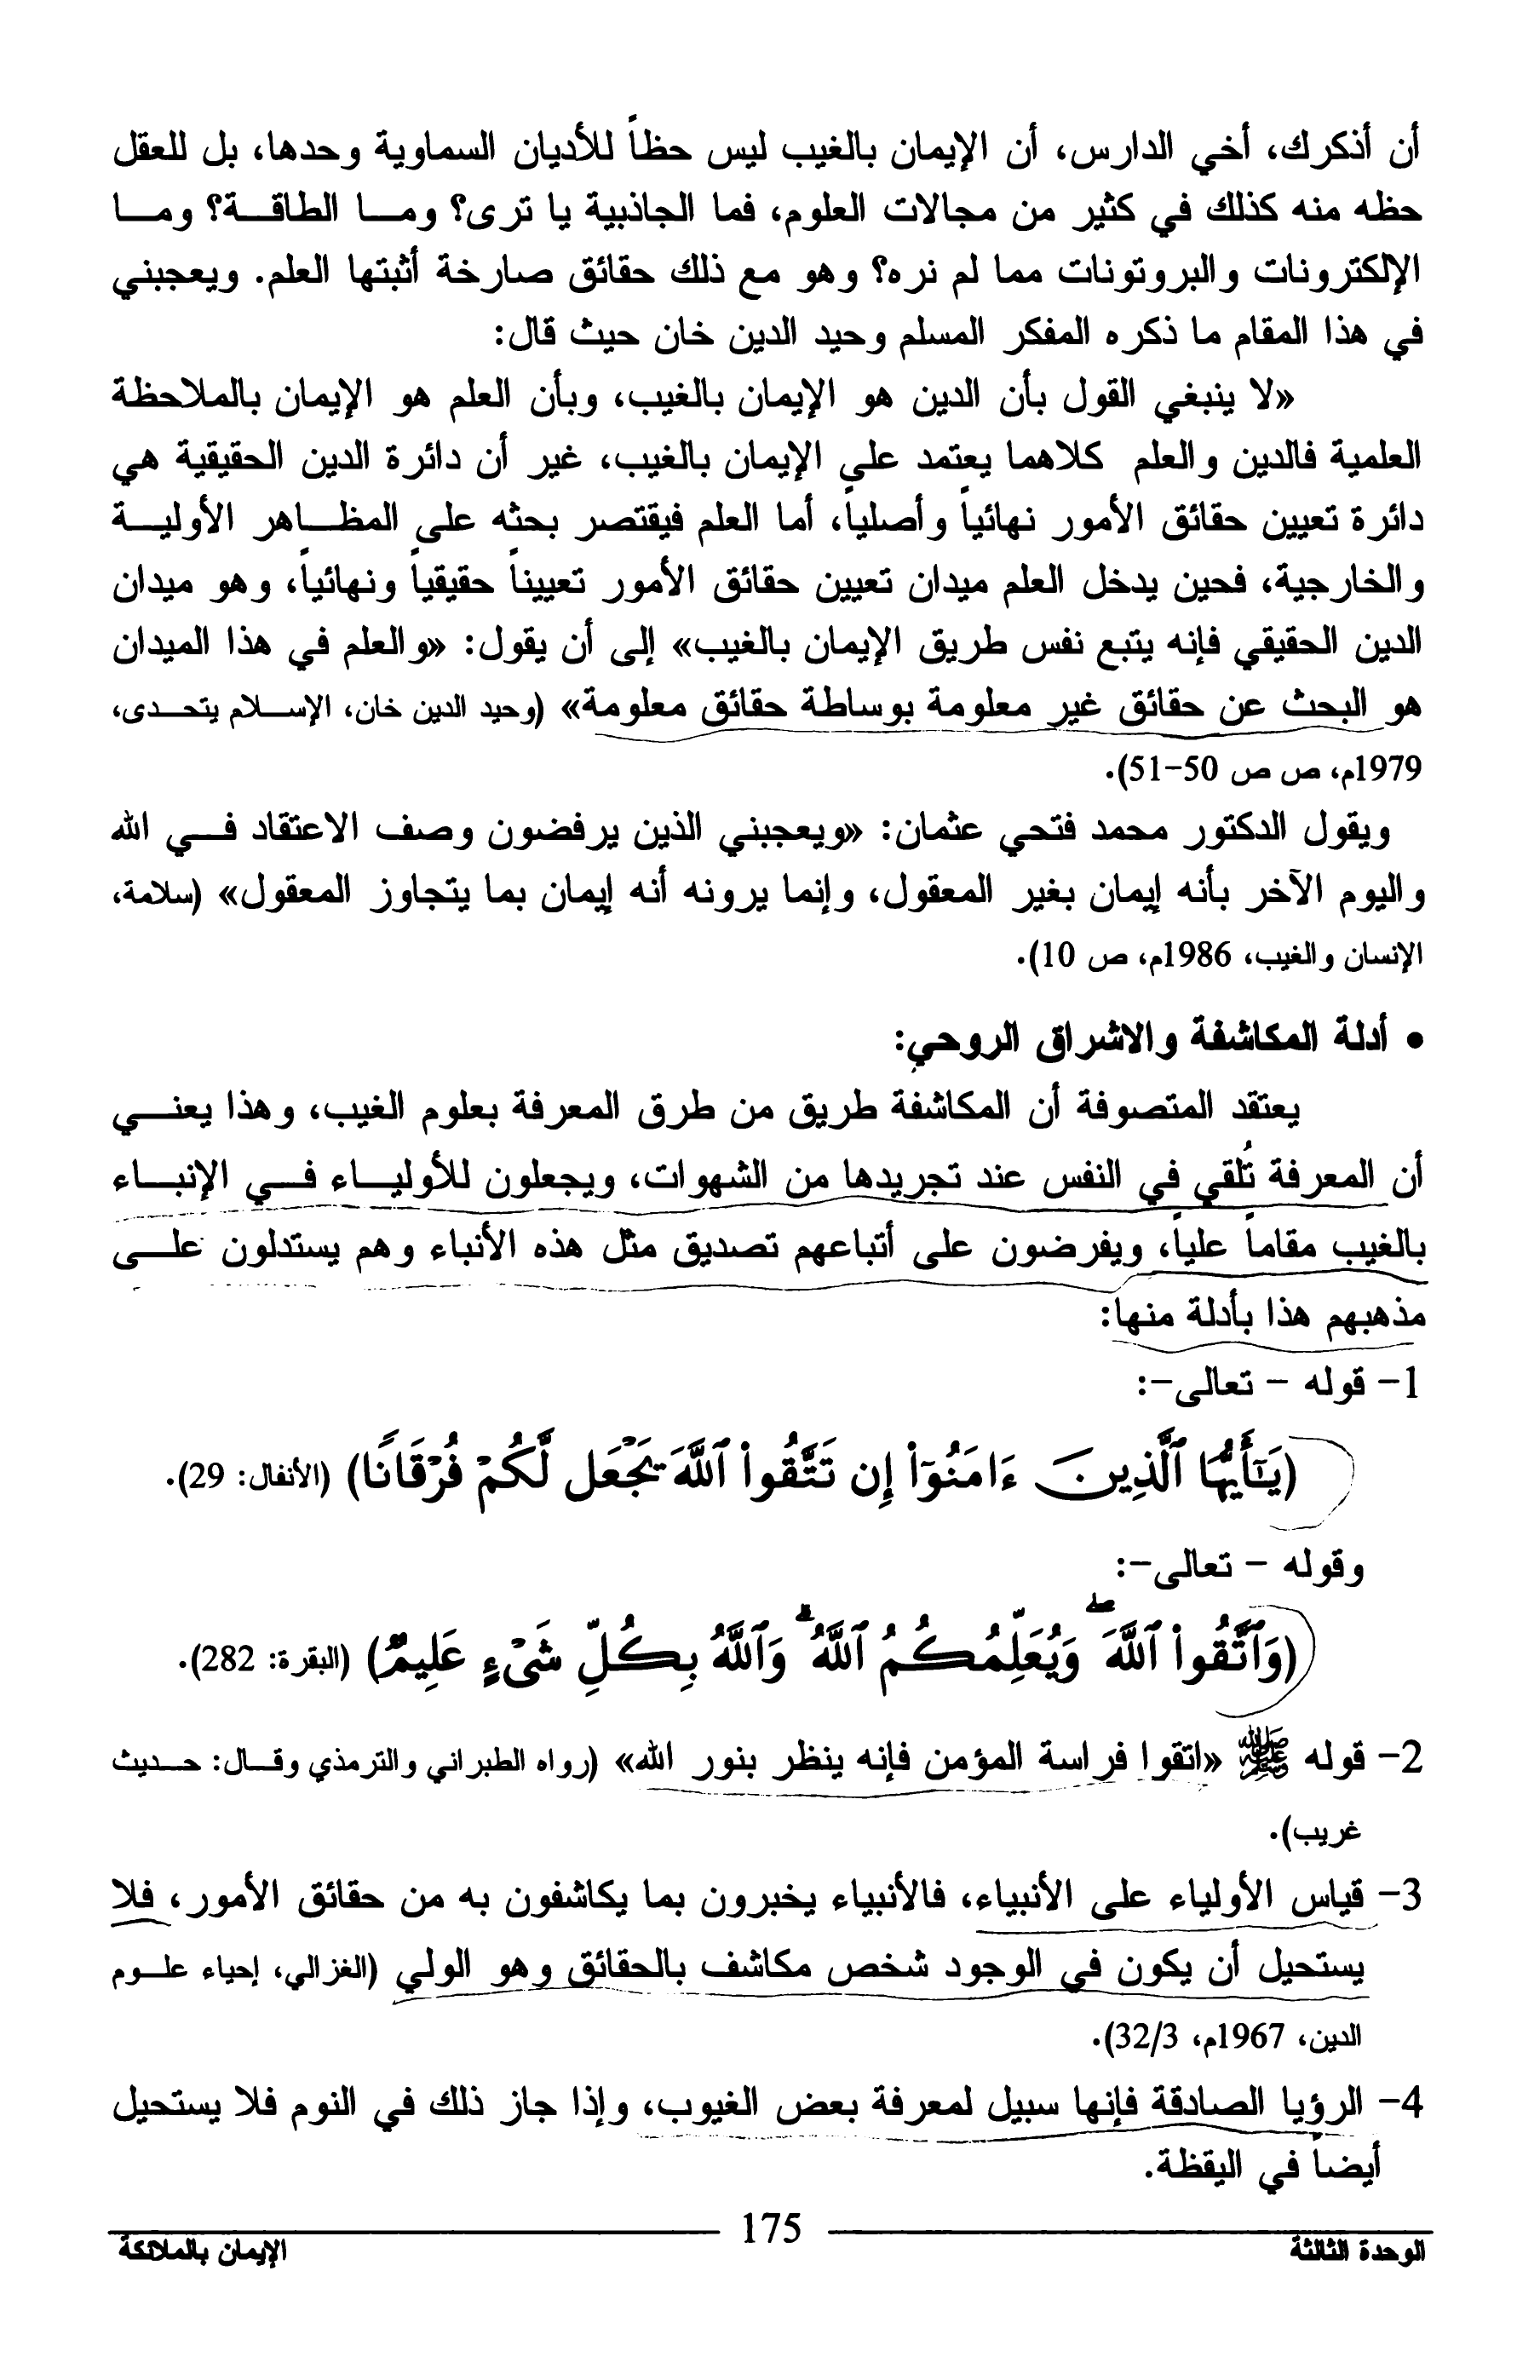 أن أذكرك، أخي الدارس، أن الإيمان بالغيب ليس حظاً للأديان السماوية وحدها، بل للعقل
حظه منه كذلك في كثير من مجالات العلوم، فما الجاذبية يا ترى؟ ومــا الطاقــة؟ ومــا
الإلكترونات والبروتونات مما لم نره؟ وهو مع ذلك حقائق صارخة أثبتها العلم. ويعجبني
في هذا المقام ما ذكره المفكر المسلم وحيد الدين خان حيث قال:
«لا ينبغي القول بأن الدين هو الإيمان بالغيب، وبأن العلم هو الإيمان بالملاحظة
العلمية فالدين والعلم كلاهما يعتمد على الإيمان بالغيب، غير أن دائرة الدين الحقيقية هي
دائرة تعيين حقائق الأمور نهائياً وأصلياً، أما العلم فيقتصر بحثه على المظــاهر الأوليــة
والخارجية، فحين يدخل العلم ميدان تعيين حقائق الأمور تعييناً حقيقياً ونهائياً، وهو ميدان
الدين الحقيقي فإنه يتبع نفس طريق الإيمان بالغيب» إلى أن يقول: «والعلم في هذا الميدان
هو البحث عن حقائق غير معلومة بوساطة حقائق معلومة» (وحيد الدين خان، الإســلام يتحــدى،
1979م، ص ص 50-51).
ويقول الدكتور محمد فتحي عثمان: «ويعجبني الذين يرفضون وصف الاعتقاد فــي الله
واليوم الآخر بأنه إيمان بغير المعقول، وإنما يرونه أنه إيمان بما يتجاوز المعقول» (سلامة،
الإنسان والغيب، 1986م، ص 10).
• أدلة المكاشفة والاشراق الروحي:
يعتقد المتصوفة أن المكاشفة طريق من طرق المعرفة بعلوم الغيب، وهذا يعنــي
أن المعرفة تُلقي في النفس عند تجريدها من الشهوات، ويجعلون للأوليــاء فــي الإنبــاء
بالغيب مقاماً علياً، ويفرضون على أتباعهم تصديق مثل هذه الأنباء وهم يستدلون علــى
مذهبهم هذا بأدلة منها:
1- قوله - تعالى-:
(يَـٰٓأَيُّهَا ٱلَّذِينَ ءَامَنُوٓا۟ إِن تَتَّقُوا۟ ٱللَّهَ يَجْعَل لَّكُمْ فُرْقَانًا) (الأنفال: 29).
وقوله - تعالى-:
(وَٱتَّقُوا۟ ٱللَّهَ ۖ وَيُعَلِّمُكُمُ ٱللَّهُ ۗ وَٱللَّهُ بِكُلِّ شَىْءٍ عَلِيمٌ) (البقرة: 282).
2- قوله ﷺ «اتقوا فراسة المؤمن فإنه ينظر بنور الله» (رواه الطبراني والترمذي وقــال: حــديث
غريب).
3- قياس الأولياء على الأنبياء، فالأنبياء يخبرون بما يكاشفون به من حقائق الأمور، فلا
يستحيل أن يكون في الوجود شخص مكاشف بالحقائق وهو الولي (الغزالي، إحياء علــوم
الدين، 1967م، 32/3).
4- الرؤيا الصادقة فإنها سبيل لمعرفة بعض الغيوب، وإذا جاز ذلك في النوم فلا يستحيل
أيضاً في اليقظة.
الوحدة الثالثة 175 الإيمان بالملائكة